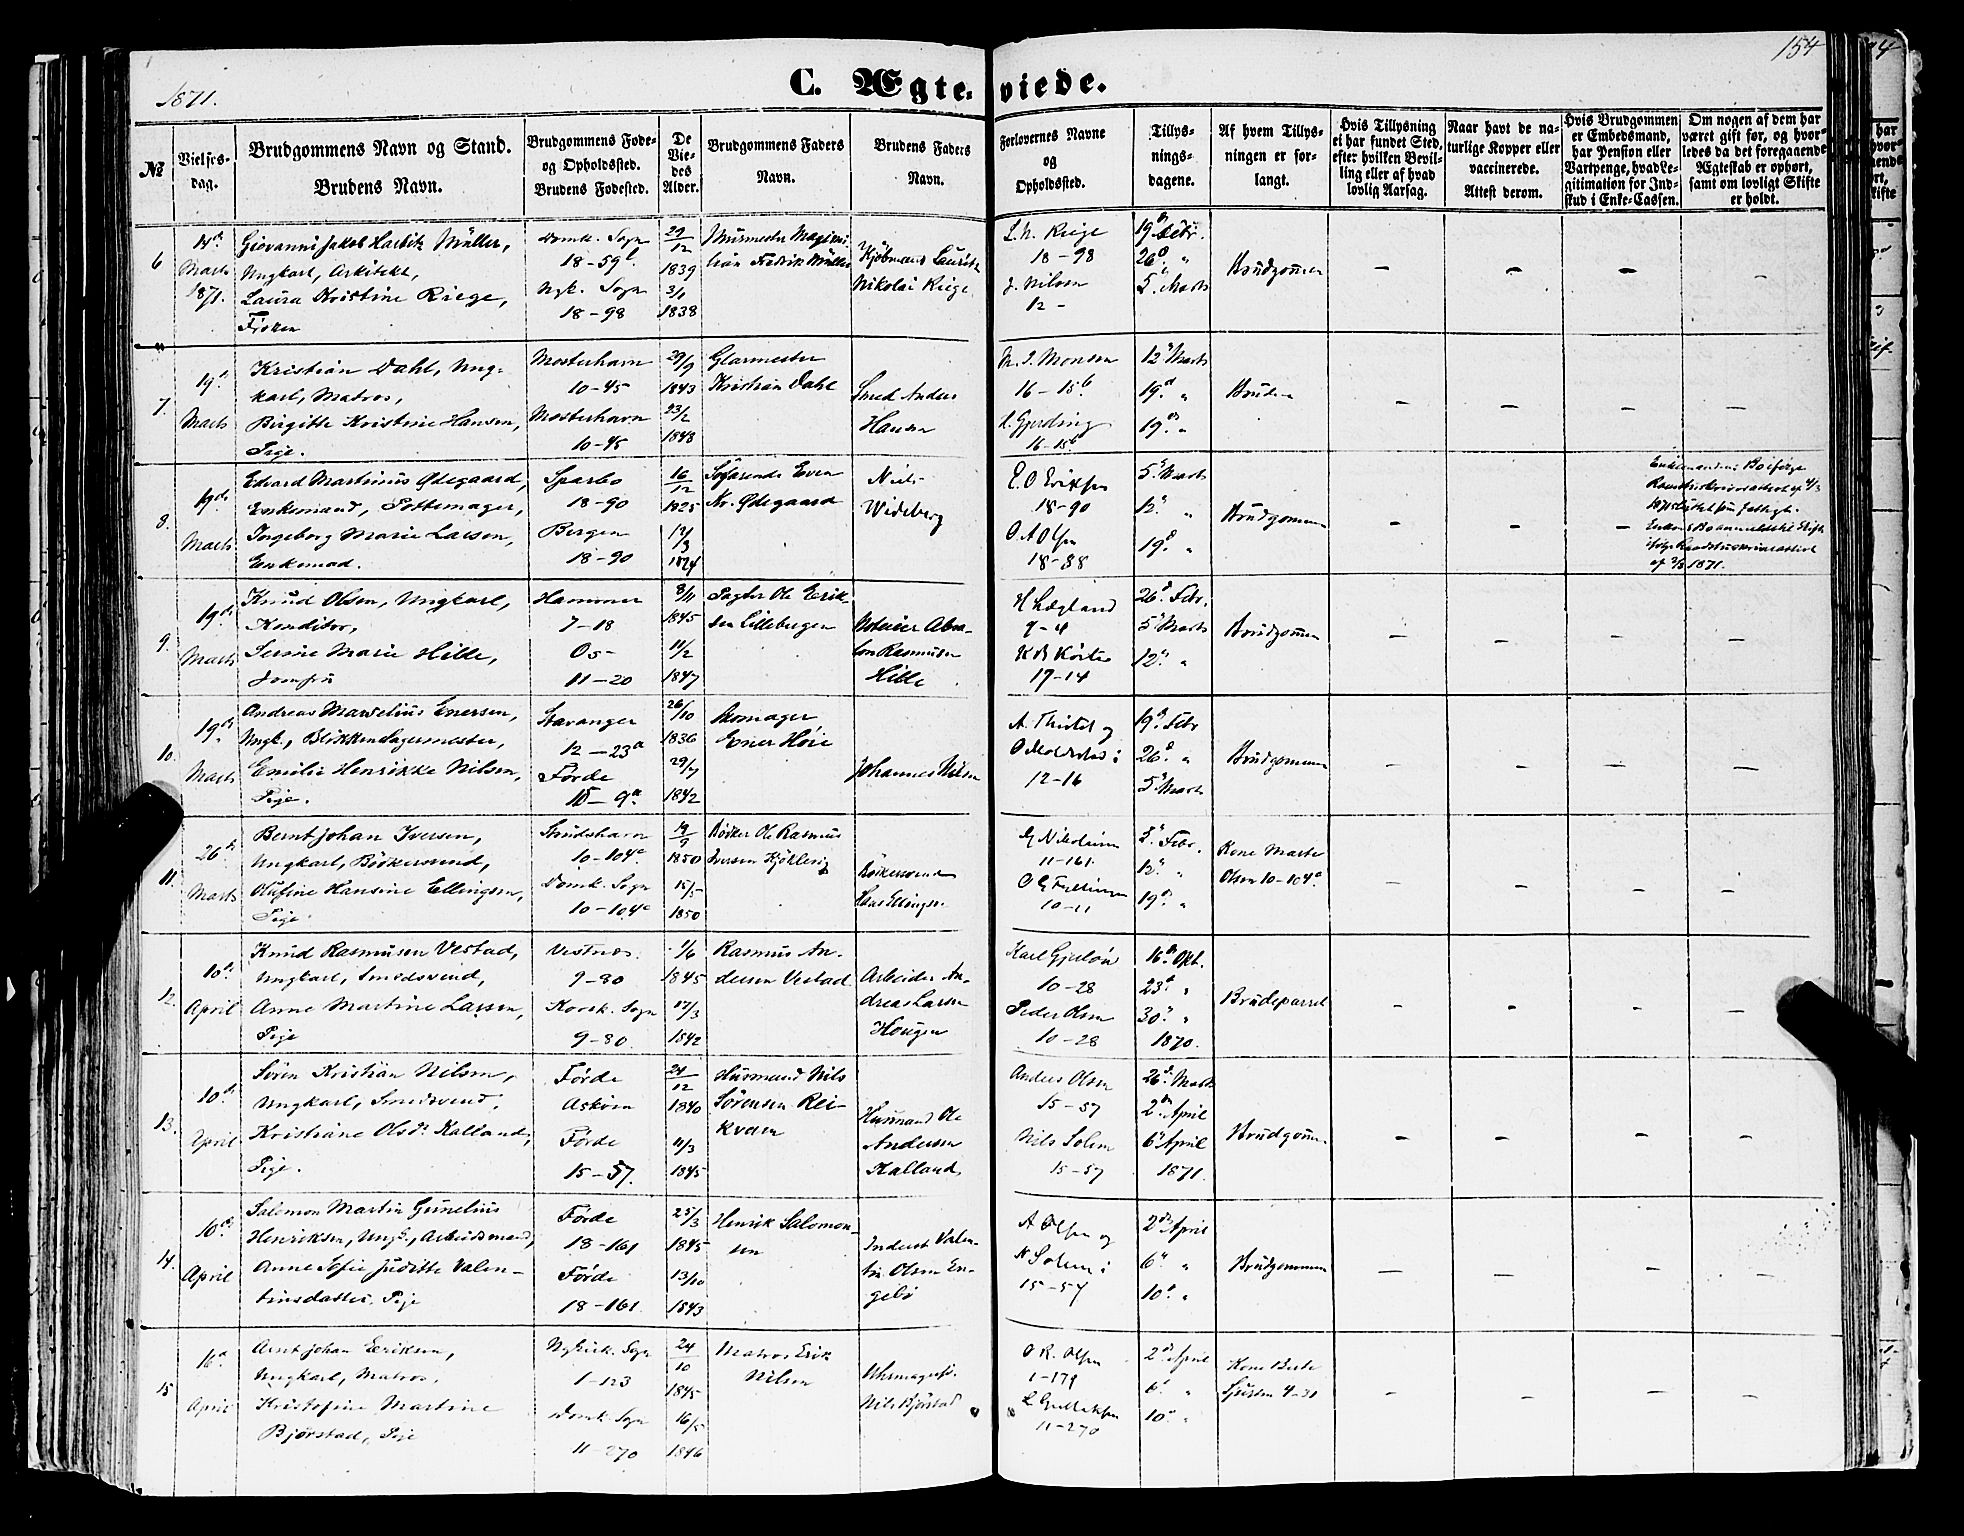 1871.
C. Ægteviede.
154
№
Vielses-
dag.
Brudgommens Navn og Stand.
Brudens Navn.
Brudgommens Føde-
og Opholdssted.
Brudens Fødested.
De
Vie-
des
Alder.
Brudgommens Faders
Navn.
Brudens Faders
Navn.
Forlovernes Navne
og
Opholdssted.
Tillys-
nings-
dagene.
Af hvem Tillys-
ningen er for-
langt.
Hvis Tillysning
ei har fundet Sted,
efter hvilken Bevil-
ling eller af hvad
lovlig Aarsag.
Naar havt de na-
turlige Kopper eller
vaccinerede.
Attest derom.
Hvis Brudgommen
er Embedsmand,
har Pension eller
Vartpenge, hvad Le-
gitimation for Ind-
skud i Enke-Cassen.
Om nogen af dem har
været gift før, og hvor-
ledes da det foregaaende
Ægteskab er ophørt,
samt om lovligt Skifte
er holdt.
6
Marts
1871.
Giovanni Jakob Harbitz Müller,
Ungkarl, Arkitekt,
Laura Kristine Riege,
Frøken
Domk. Sogn
18-59
Nyk. Sogn
18-98
29/12
1839
3/1
1838
Murmester Maximi-
lian Fredrik Müller
Kjøbmand Lauritz
Nikolai Riege
L. N. Riege
18-98
J. Nilsen
12-
19 Febr.
26 "
5 Marts
Brudgommen
7.
19
Marts
Kristian Dahl, Ung-
karl, Matros,
Birgitte Kristine Hansen,
Pige.
Mosterhavn
10-45
Mosterhavn
10-45
29/9
1843
23/2
1848
Glarmester
Kristian Dahl
Smed Anders
Hansen
M. J. Monsen
16-15b
L. Gjerding
16-15b
12 Marts
19 "
19 "
Bruden
8.
19
Marts
Edvard Martinus Ødegaard,
Enkemand, Pottemager,
Ingeborg Marie Larsen,
Enkemad.
Sparbo
18-90
Bergen
18-90
16/12
1825
12/3
1824
Søfarende Even
Nr. Ødegaard
Niels
Wideberg
E. O. Eriksen
18-90
O A Olsen
18-88
5 Marts
12 "
19 "
Brudgommen
af 2/3 1871.
9.
19
Marts
Knud Olsen, Ungkarl,
Konditor,
Serine Marie Hille,
Jomfru
Hammer
7-18
Os-
11-20
8/11
1845
11/2
1847
Pagter Ole Erik-
sen Lillebergen
Rasmusen
Hille
H Lægland
7-4
17-14
26 Febr.
5 Marts
12 "
Brudgommen
10.
19
Marts
Andreas Marselius Enersen,
Ungk., Blikkenslagermester,
Emilie Henrikke Nilsen,
Pige.
Stavanger
12-23a
Førde
15-9a
26/10
1836
29/7
1842
Skomager
Ener Høie
Johannes Nilsen
12-16
19 Febr
26 "
5 Marts
Brudgommen
11.
26
Marts
Bernt Johan Iversen,
Ungkarl, Bødkersvend,
Olufine Hansine Ellingsen,
Pige.
Skudshavn
10-104c
Domk. Sogn
10-104c
19/9
1850
15/5
1850
Bødker Ole Rasmus
Iversen Kjøkleiv
Bødkersvend
Ellingsen
11-161.
10-11
5 Febr.
12 "
19 "
Kone Marte
Olsen 10-104c
12.
10
April
Knud Rasmusen Vestad,
Ungkarl, Smedsvend,
Anne Martine Larsen,
Pige
Vestnes
9-80
Korsk. Sogn
9-80.
1/6
1845
17/3
1842
Rasmus An-
dersen Vestad
Arbeider An-
dreas Larsen
Hougen
Karl Gjerløw
10-28
Peder Olsen
10-28
16 Okt.
23 "
30 "
1870.
Brudeparret
13.
10
April
Søren Kristian Nilsen,
Ungkarl, Smedsvend,
Kristiane Olsd. Kalland,
Pige.
Førde
Askøen
Førde
15-57.
24/12
1840
11/3
1845
Husmand Nils
Sørensen Rei-
kvam
Husmand Ole
Andersen
Kalland,
Anders Olsen
15-57
Nils Solem
15-57
26 Marts
2 April
6 April
1871.
Brudgommen
14.
10
April
Salomon Martin Gunelius
Henriksen, Ungk., Arbeidsmand,
Anne Sofie Juditte Valen-
tinsdatter, Pige
Førde
18-161
Førde
18-161.
25/3
1845
13/10
1843
Henrik Salomon-
sen
Inderst Valen-
tin Olsen En-
gebø
A Olsen og
N Solem i
15-57
2 April
6 "
10 "
Brudgommen
15
16
April
Arnt Johan Eriksen,
Ungkarl, Matros,
Kristofine Martine
Bjørstad, Pige
Nykirk. Sogn
1-123
Domk. Sogn
11-270
24/10
1845
16/5
1846
Matros Erik
Nilsen
Uhrmagersv.
Nils Bjørstad
O R. Olsen
1-179
11-270
2 April
6 "
10 "
Kone Berte
4-31